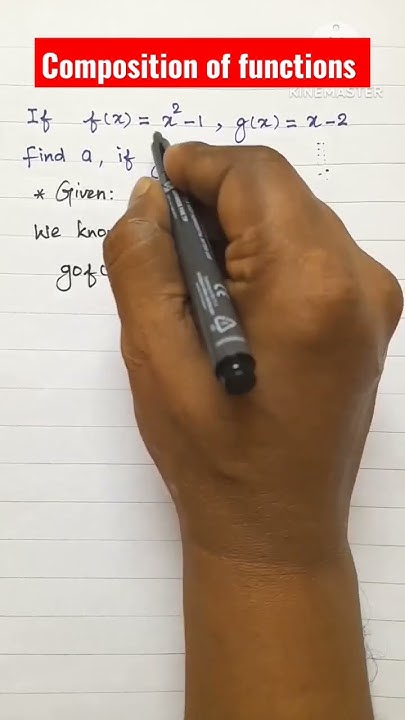 Composition of functions
KINEMASTER
If f(x) = x² - 1 , g(x) = x - 2
Find a, if g
* Given:
We know
gof